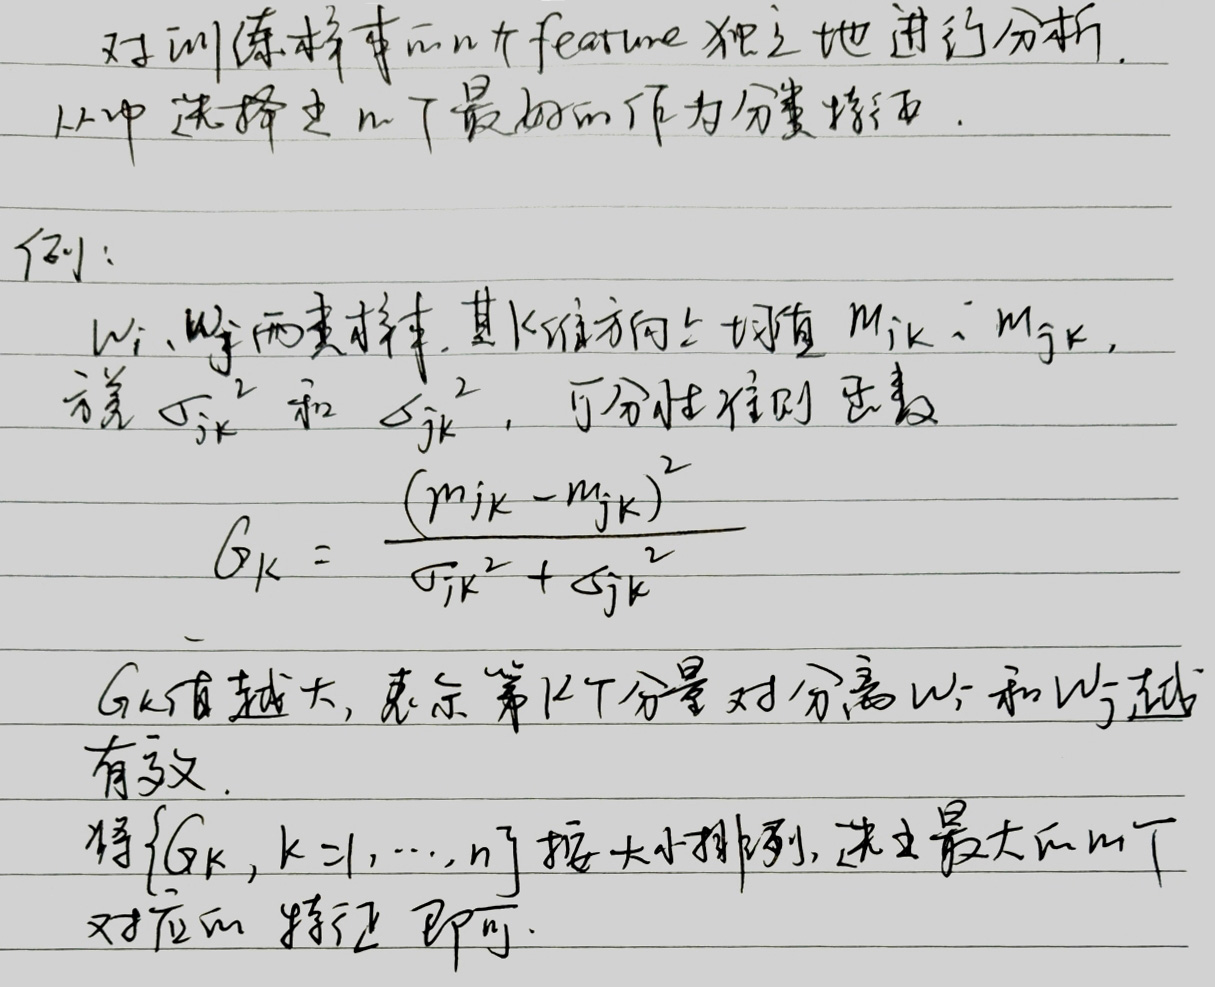 对训练样本的n个feature独立地进行分析.
从中选择出m个最好的作为分类特征.
例:
Wi、Wj两类样本.其K维方向上均值 mik、mjk,
方差 σik² 和 σjk², 可分性准则函数
GK = (mik - mjk)² / (σik² + σjk²)
GK值越大,表示第K个分量对分离Wi和Wj越
有效.
将{GK, k=1,…,n}按大小排列,选出最大的m个
对应的特征即可.